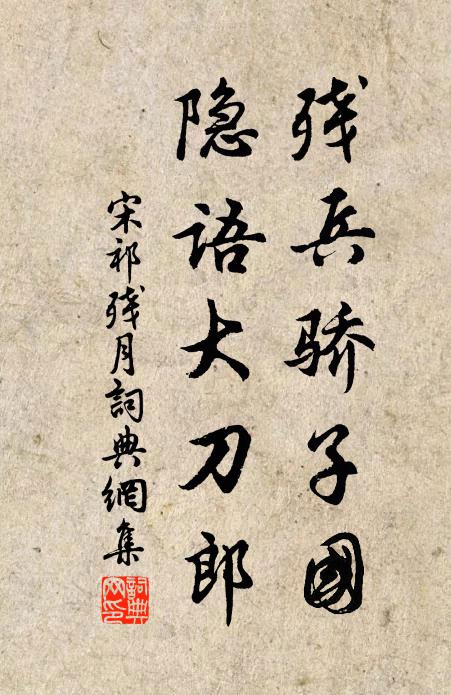 残兵骄子國
隐语大刀郎
宋祁残月詞典網集
詞典网印